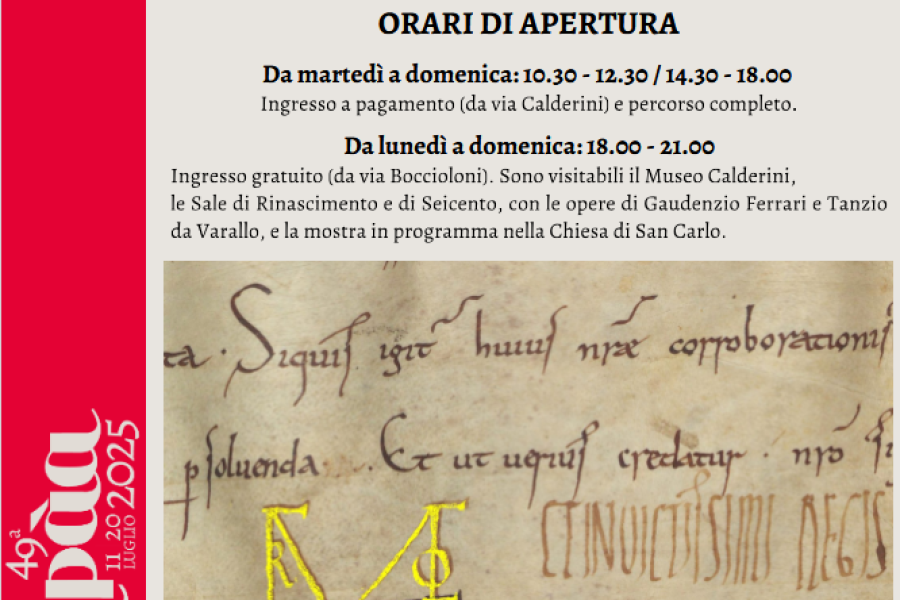 ORARI DI APERTURA
Da martedì a domenica: 10.30 - 12.30 / 14.30 - 18.00
Ingresso a pagamento (da via Calderini) e percorso completo.
Da lunedì a domenica: 18.00 - 21.00
Ingresso gratuito (da via Boccioloni). Sono visitabili il Museo Calderini,
le Sale di Rinascimento e di Seicento, con le opere di Gaudenzio Ferrari e Tanzio
da Varallo, e la mostra in programma nella Chiesa di San Carlo.
ta · Siquis igit huius nrae corroborationis
psoluenda. Et ut uerius credatur · nro
ETINVICTISSIMI REGIS
49ª
pàa
11 20 2025
LUGLIO